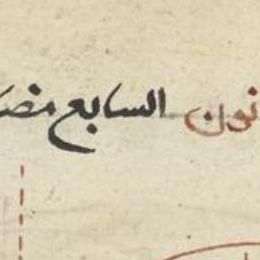 نون السابع مضا